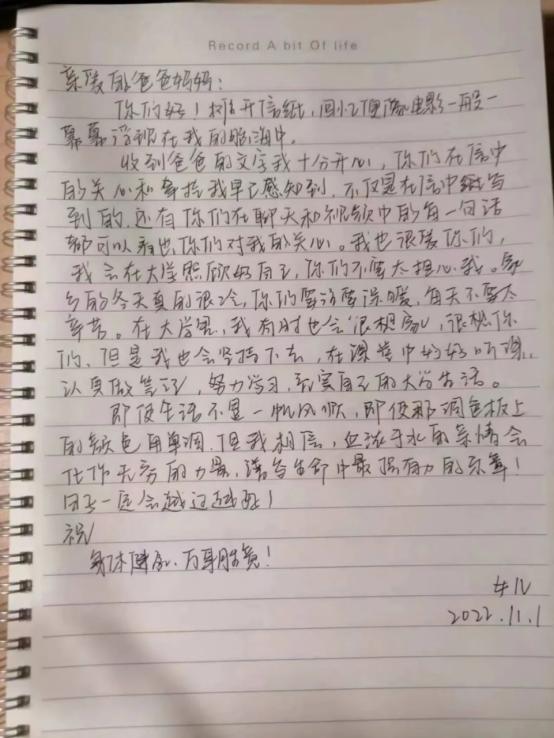 Record A bit Of life
亲爱的爸爸妈妈：
你们好！摊开信纸，回忆便像电影一般一
幕幕浮现在我的脑海中。
收到爸爸的文字我十分开心，你们在信中
的关心和牵挂我早已感知到，不仅是在信中能写
到的，还有你们在聊天和视频中的每一句话
都可以看出你们对我的关心。我也很爱你们，
我会在大学照顾好自己，你们不要太担心我。家
乡的冬天真的很冷，你们要注意保暖，每天不要太
辛苦。在大学里，我有时也会很想家，很想你
们，但是我也会坚持下去，在课堂中好好听课，
认真做笔记，努力学习，充实自己的大学生活。
即使生活不是一帆风顺，即使那调色板上
的颜色用单调，但我相信，血浓于水的亲情会
化作无穷的力量，谱写生命中最强有力的乐章！
日子一定会越过越好！
祝
身体健康、万事胜意！
2022.11.1